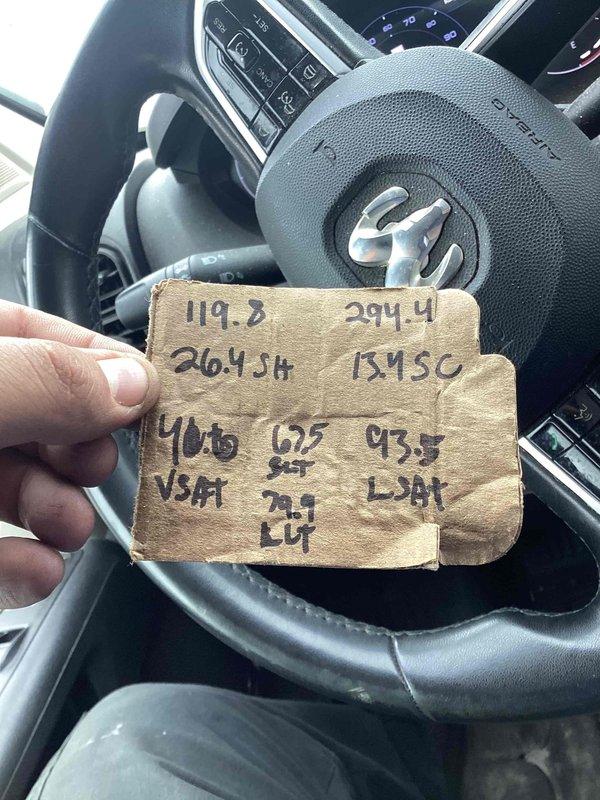 RES
SET-
CANC
70
80
90
E
AIRBAG
119.8 294.4
26.4 SH 13.4 SC
67.5 93.5
VSAT SLT LSAT
79.9
LLT